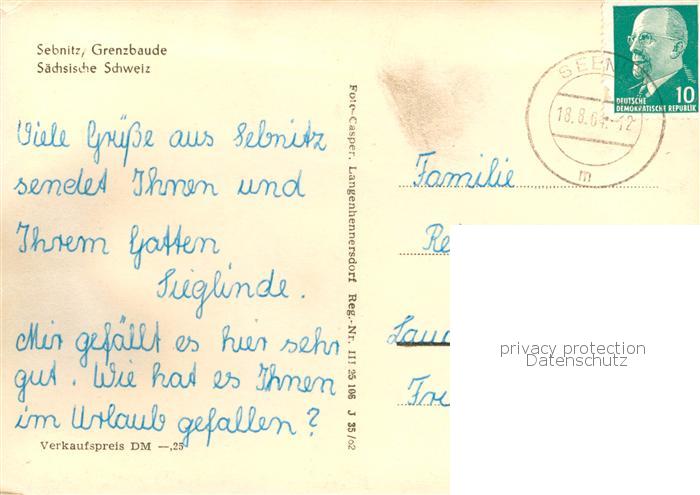 Sebnitz, Grenzbaude
Sächsische Schweiz
Viele Grüße aus Sebnitz
sendet Ihnen und
Ihrem Gatten
Sieglinde.
Mir gefällt es hier sehr
gut. Wie hat es Ihnen
im Urlaub gefallen?
Verkaufspreis DM —,25
Foto-Casper, Langenhennersdorf Reg.-Nr. III 25 106 J 35/62
DEUTSCHE
DEMOKRATISCHE REPUBLIK
10
18.8.64.-12
m
Familie
privacy protection
Datenschutz